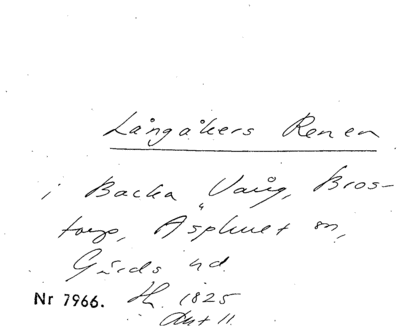 Långåkers Renen
i Backa Vång, Bros-
torp, Asphult sn,
Gärds hd.
Nr 7966. Hs. 1825
Akt 11.